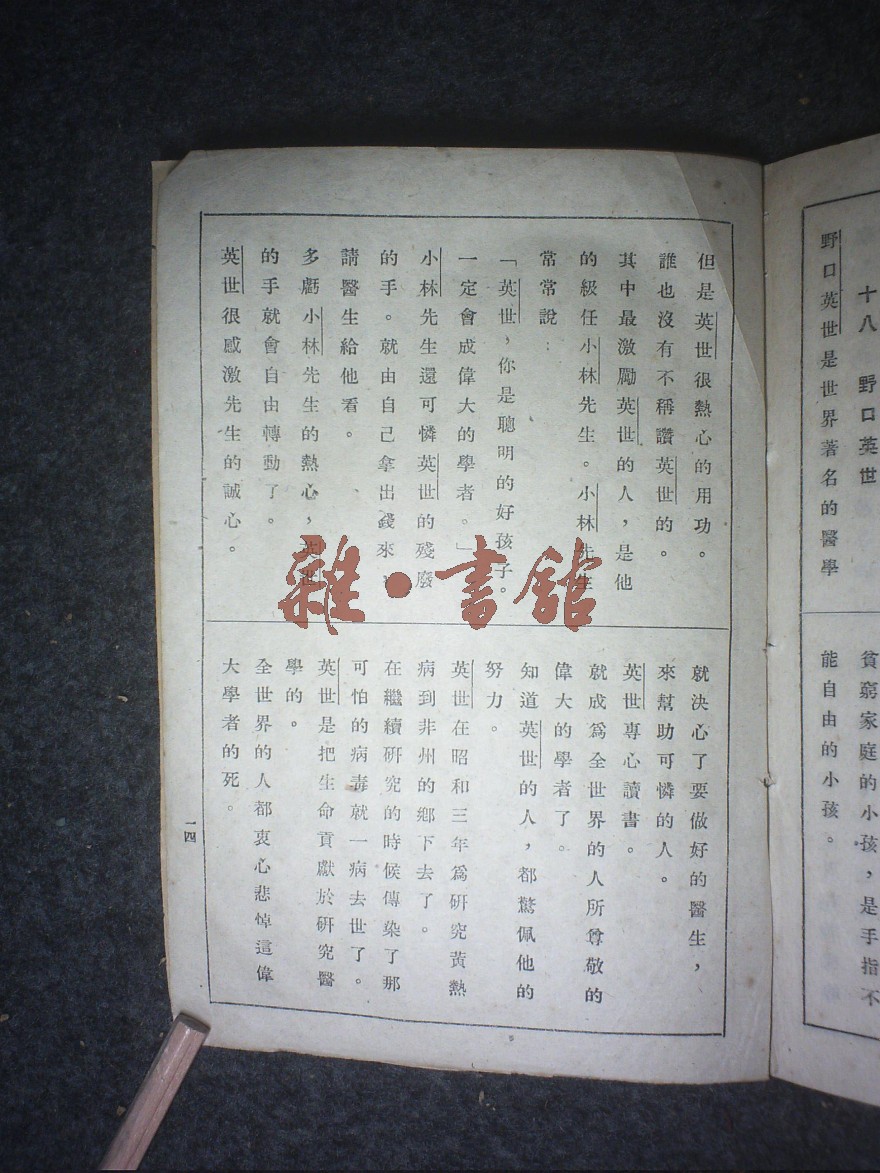 十八　野口英世
野口英世是世界著名的醫學
貧窮家庭的小孩，是手指不
能自由的小孩。
但是英世很熱心的用功。
誰也沒有不稱讚英世的。
其中最激勵英世的人，是他
的級任小林先生。小林先生
常常說：
「英世，你是聰明的好孩子。
一定會成偉大的學者。」
小林先生還可憐英世的殘廢
的手。就由自己拿出錢來，
請醫生給他看。
多虧小林先生的熱心，英世
的手就會自由轉動了。
英世很感激先生的誠心。
就決心了要做好的醫生，
來幫助可憐的人。
英世專心讀書。
就成爲全世界的人所尊敬的
偉大的學者了。
知道英世的人，都驚佩他的
努力。
英世在昭和三年爲硏究黃熱
病到非州的鄉下去了。
在繼續硏究的時候傳染了那
可怕的病毒就一病去世了。
英世是把生命貢獻於硏究醫
學的。
全世界的人都衷心悲悼這偉
大學者的死。
一四
雜·書館